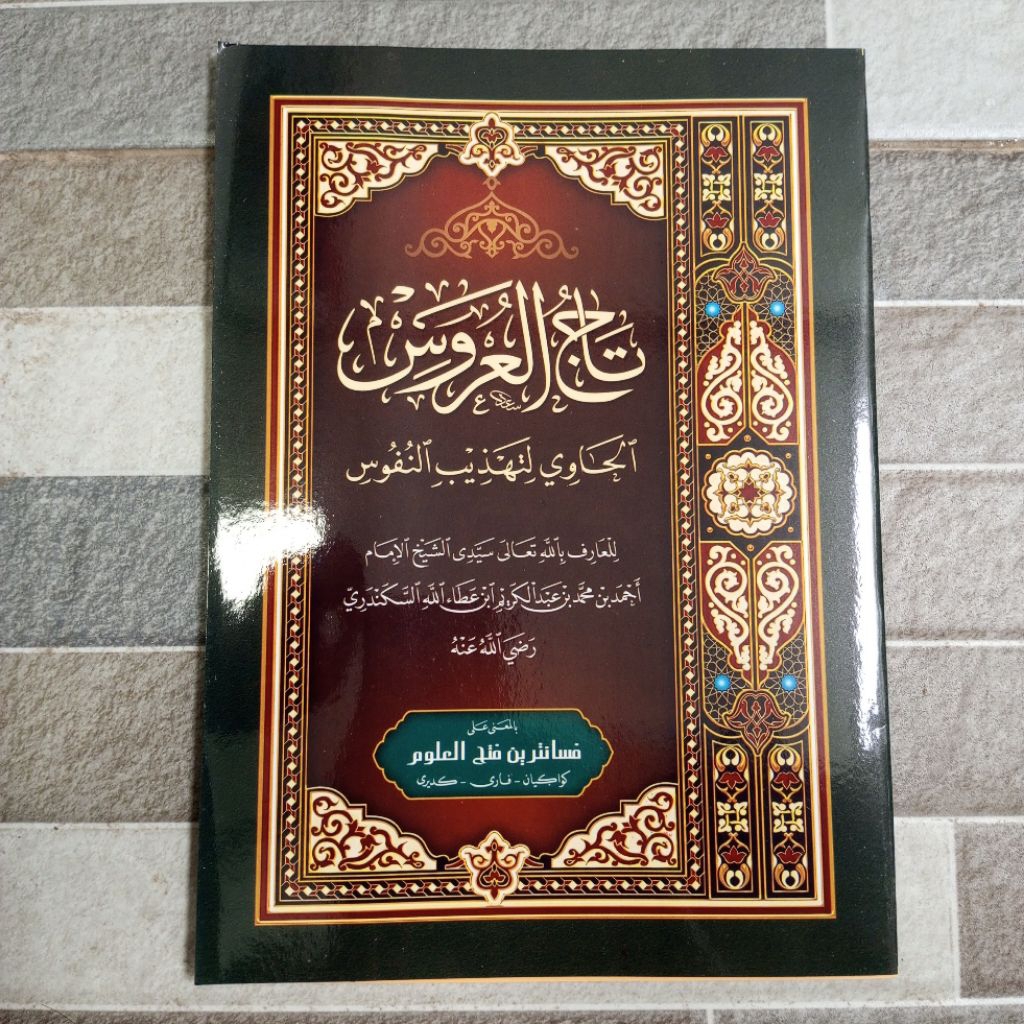 تَاجُ الْعَرُوسِ
الحَاوِي لِتَهْذِيبِ النُّفُوسِ
لِلْعَارِفِ بِاللَّهِ تَعَالَى سَيِّدِى الشَّيْخِ الإِمَامِ
أَحْمَدَ بْنِ مُحَمَّدِ بْنِ عَبْدِ الْكَرِيْمِ ابْنِ عَطَاءِ اللَّهِ السَّكَنْدَرِيّ
رَضِيَ اللَّهُ عَنْهُ
بالمعنى على
فسانترين فتح العلوم
كواكيان - فارى - كديرى